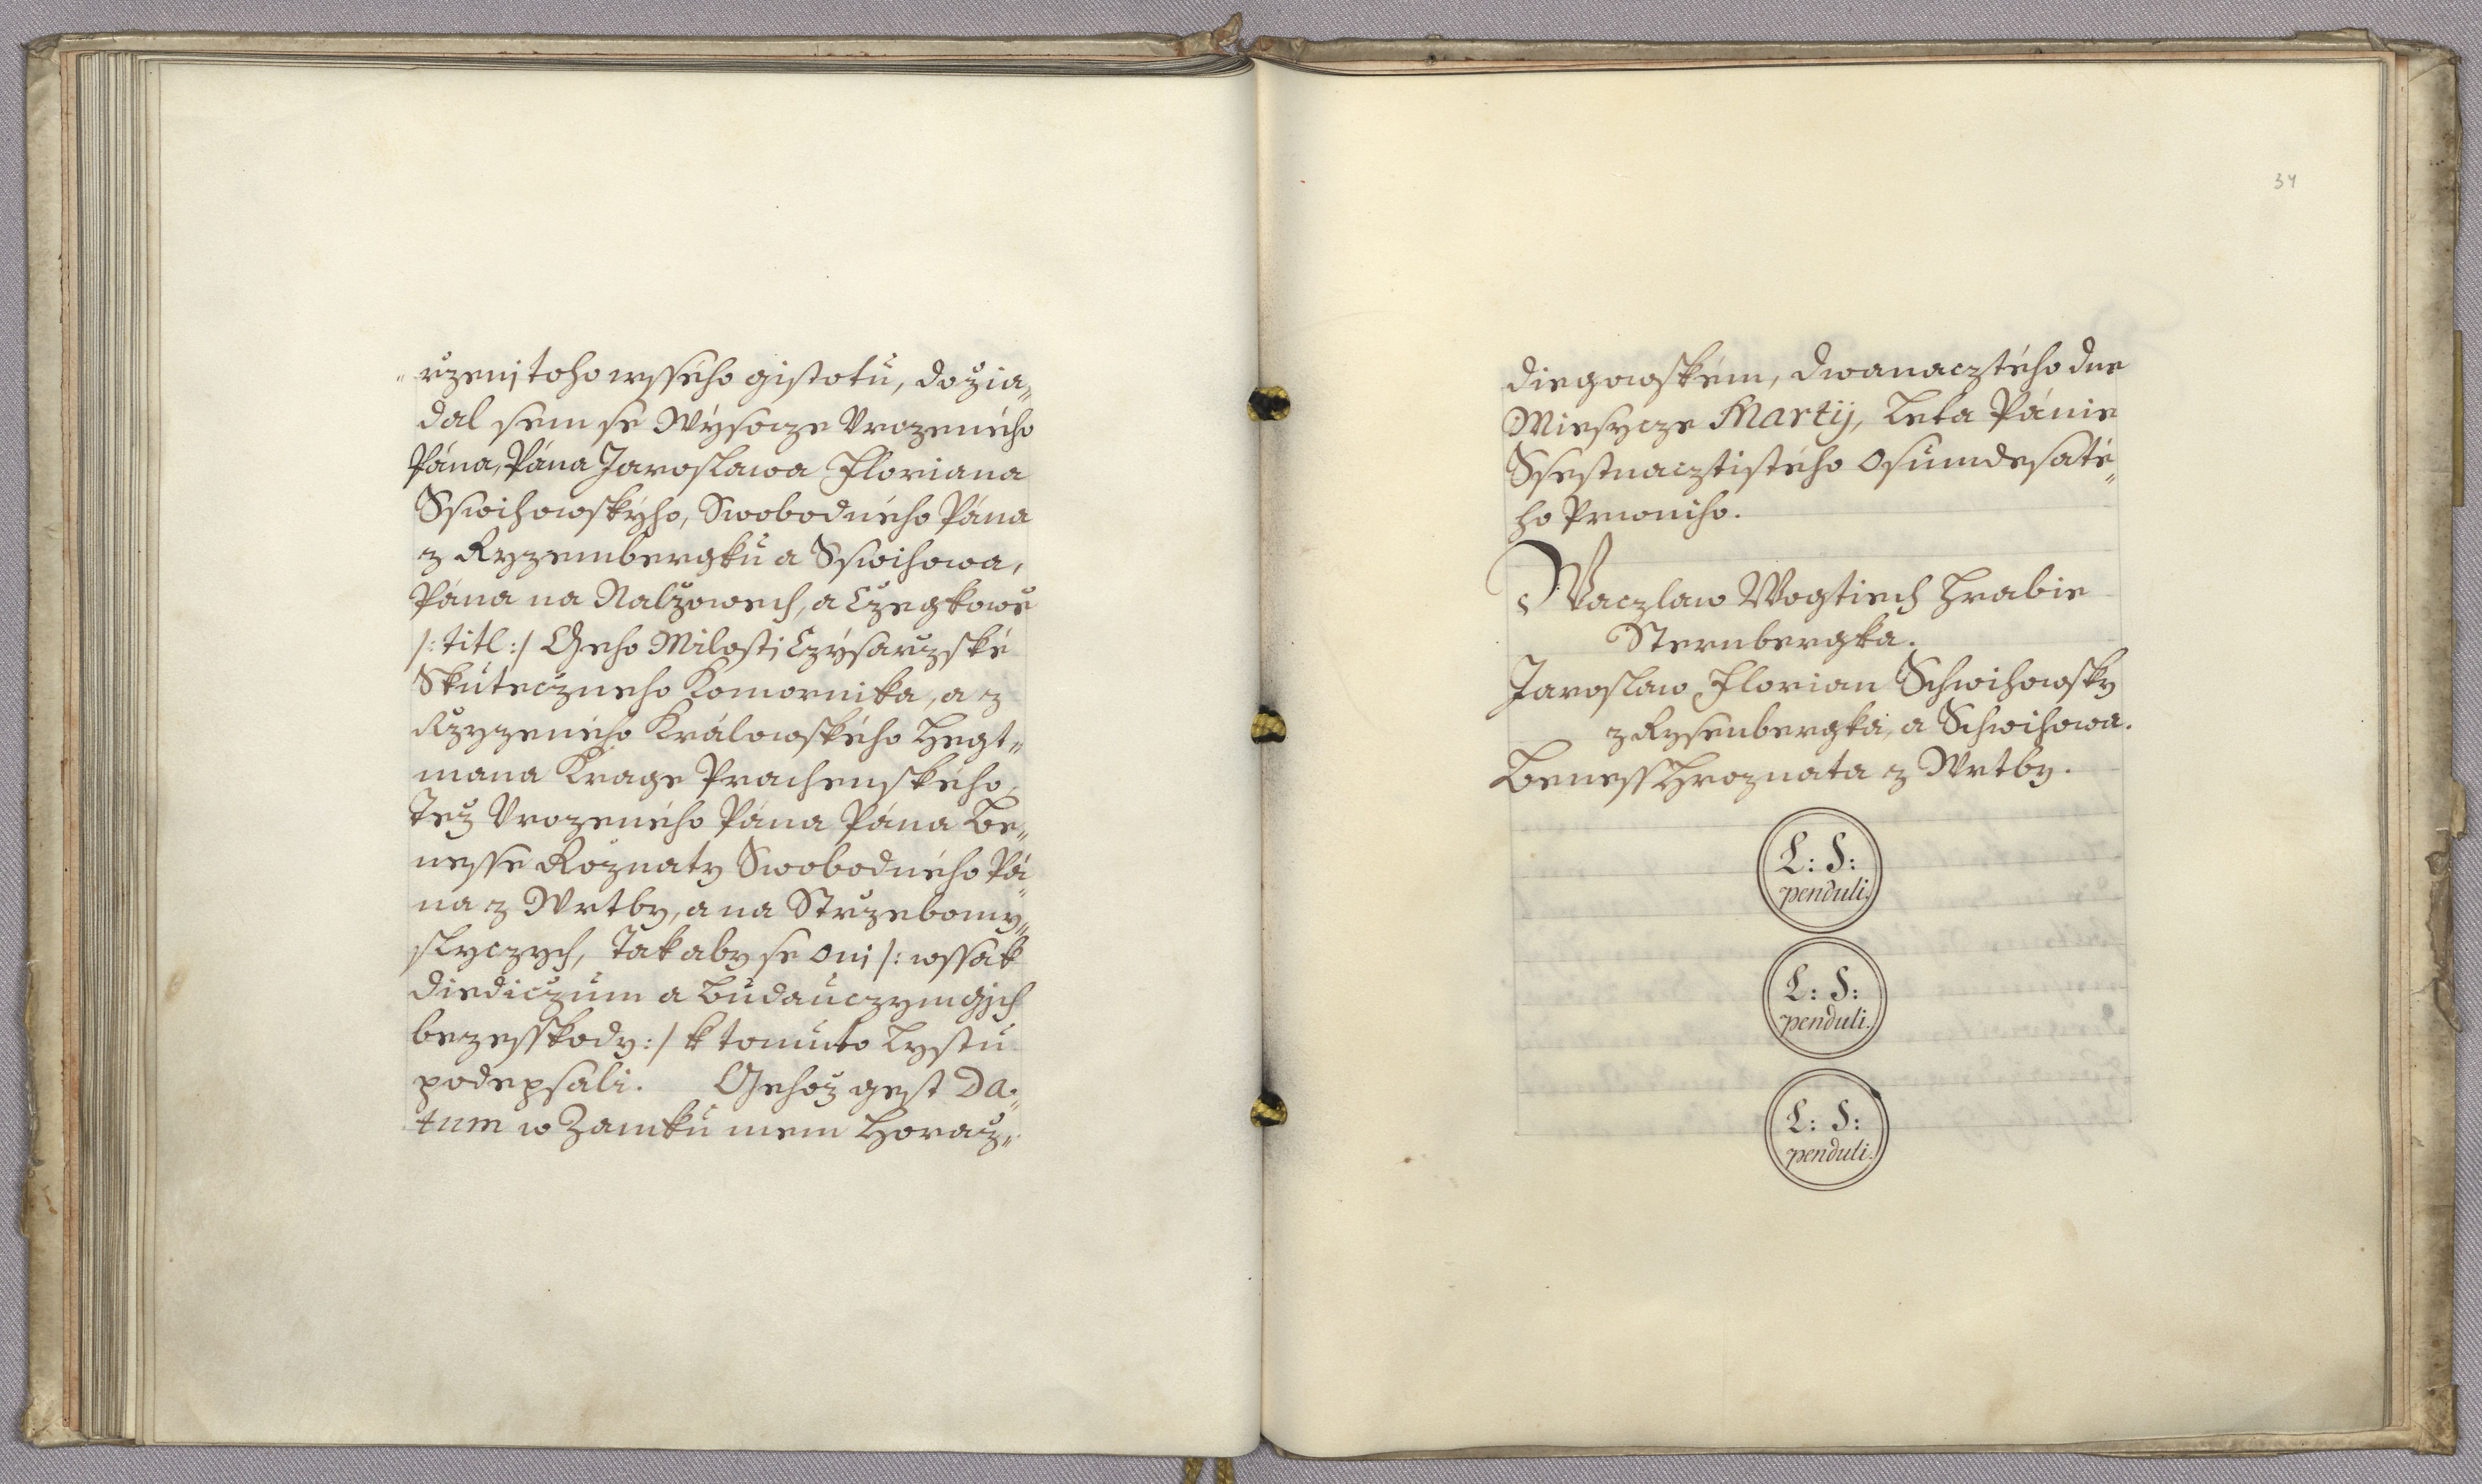 "rzenj toho wssého gistotu, dožia"
dal sem se Wýsocze Urozeného
Pána, Pána Jaroslawa Floriana
Sswihowskýho, Swobodného Pána
z Ryzembergku a Sswihowa,
Pána na Nalžowech, a Czegkowě
/: titl :/ Geho Milosti Czýsarzské
Skutečzneho Komornika, a z
Rzyzeného Králowského Hegt"
mana Krage Prachenského,
Tež Urozeného Pána Pána Be"
nesse Roznaty Swobodného Pá"
na z Wrtby, a na Strzebomy"
slyczych, Tak aby se onj /: wssak
diedičzum a budauczym gjch
bezesskody :/ k tomuto Lystu
podepsali. Gehož gest Da"
tum w Zamku mem Horaž"
34
diegowském, dwanacztého dne
Miesycze Martij, Leta Pánie
Ssestnacztistého Osumdesaté"
ho Prwniho.
Waczlaw Wogtiech Hrabie
Sternbergka.
Jaroslaw Florian Schwihowsky
z Rysenbergka, a Schwihowa.
Beness Hroznata z Wrtby.
L: S:
penduli.
L: S:
penduli.
L: S:
penduli.